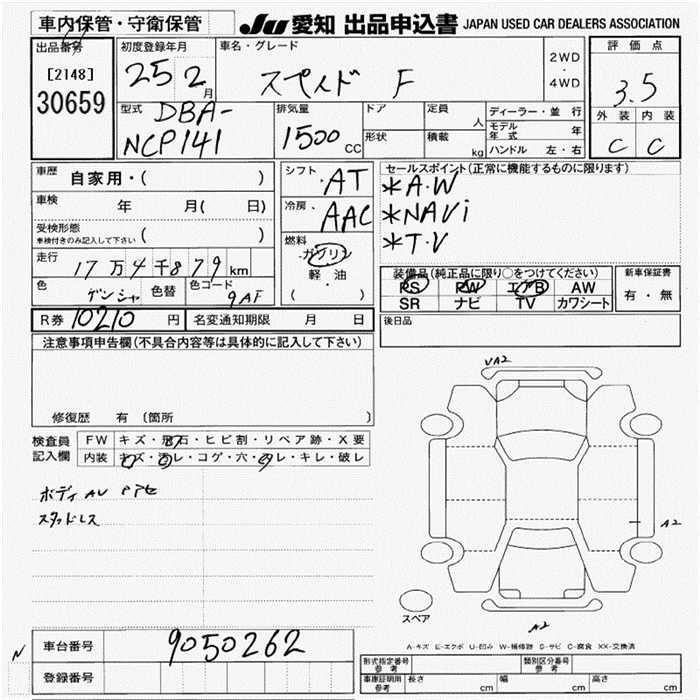 車内保管・守衛保管
JU 愛知 出品申込書 JAPAN USED CAR DEALERS ASSOCIATION
出品番号
[2148]
30659
初度登録年月
25 2月
車名・グレード
スペイド F
2WD
・
4WD
評価点
3.5
外装 内装
C C
型式
DBA-
NCP141
排気量
1500 CC
ドア
形状
定員
人
積載
kg
ディーラー・並行
モデル年式 年
ハンドル 左・右
車歴
自家用・( )
車検 年 月( 日)
受検形態
車検付きのみ記入して下さい ( )
走行 17万4千879km
色 ゲンシャ 色替 色コード 9AF
シフト
・AT
冷房、
AAC
燃料
ガソリン
軽・油
( )
セールスポイント(正常に機能するものに限ります)
*A・W
*NAVi
*T・V
装備品(純正品に限り○をつけてください)
PS PW エアB AW
SR ナビ TV カワシート
新車保証書
有・無
R券 10210 円 名変通知期限 月 日
後日品
注意事項申告欄(不具合内容等は具体的に記入して下さい)
修復歴 有 (箇所
検査員
記入欄
FW キズ・飛石・ヒビ割・リペア跡・X要
内装 キズ・汚レ・コゲ・穴・スレ・キレ・破レ
ボディAU
スタッドレス
A2
A2
スペア
A2
A-キズ E-エクボ U-凹み W-補修跡 S-サビ C-腐食 XX-交換済
N
車台番号 9050262
登録番号
形式指定番号
参考
類別区分番号
参考
車庫証明用
参考
長さ cm 幅 cm 高さ cm